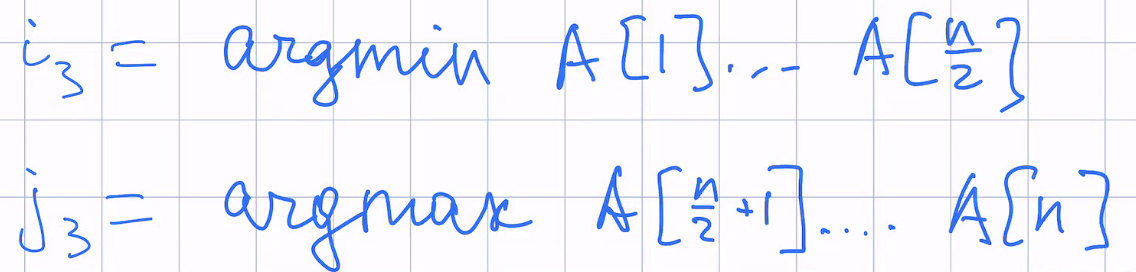 i₃ = argmin A[1]... A[n/2]
j₃ = argmax A[n/2 +1].... A[n]